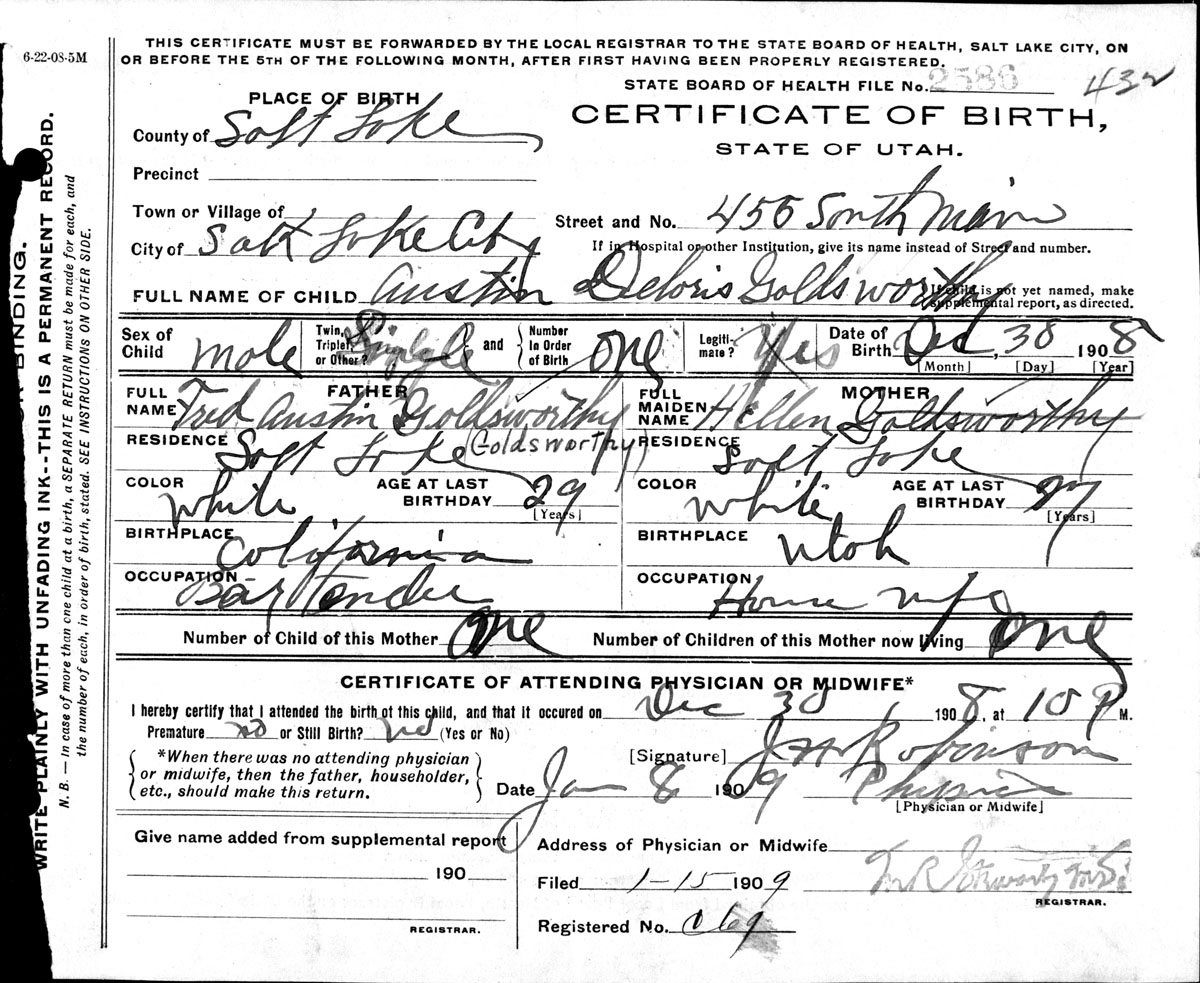 6-22-08-5M
THIS CERTIFICATE MUST BE FORWARDED BY THE LOCAL REGISTRAR TO THE STATE BOARD OF HEALTH, SALT LAKE CITY, ON
OR BEFORE THE 5TH OF THE FOLLOWING MONTH, AFTER FIRST HAVING BEEN PROPERLY REGISTERED.
STATE BOARD OF HEALTH FILE No. 2586 432
PLACE OF BIRTH
CERTIFICATE OF BIRTH,
STATE OF UTAH.
County of Salt Lake
Precinct
Town or Village of
Street and No. 455 South Main
City of Salt Lake City
If in Hospital or other Institution, give its name instead of Street and number.
FULL NAME OF CHILD Austin Deloris Goldsworthy
If child is not yet named, make
supplemental report, as directed.
Sex of Child Male
Twin, Triplet, or Other? Single and Number In Order of Birth One
Legiti-mate? Yes
Date of Birth Dec, 30 1908
[Month] [Day] [Year]
FATHER
FULL NAME Fred Austin Goldsworthy
MOTHER
FULL MAIDEN NAME Hellen Goldsworthy
RESIDENCE Salt Lake (Goldsworthy)
RESIDENCE Salt Lake
COLOR White AGE AT LAST BIRTHDAY 29
[Years]
COLOR White AGE AT LAST BIRTHDAY 27
[Years]
BIRTHPLACE California
BIRTHPLACE Utah
OCCUPATION Bar Tender
OCCUPATION House
Number of Child of this Mother One Number of Children of this Mother now living One
CERTIFICATE OF ATTENDING PHYSICIAN OR MIDWIFE*
I hereby certify that I attended the birth of this child, and that it occured on Dec 30 1908, at 10 P M.
Premature no or Still Birth? no (Yes or No)
*When there was no attending physician
or midwife, then the father, householder,
etc., should make this return.
[Signature] J H Robinson
Date Jan 8 1909 Physician
[Physician or Midwife]
Give name added from supplemental report
190
REGISTRAR.
Address of Physician or Midwife
Filed 1-15 1909
REGISTRAR.
Registered No.
BINDING.
WRITE PLAINLY WITH UNFADING INK--THIS IS A PERMANENT RECORD.
N. B. — In case of more than one child at a birth, a SEPARATE RETURN must be made for each, and
the number of each, in order of birth, stated. SEE INSTRUCTIONS ON OTHER SIDE.